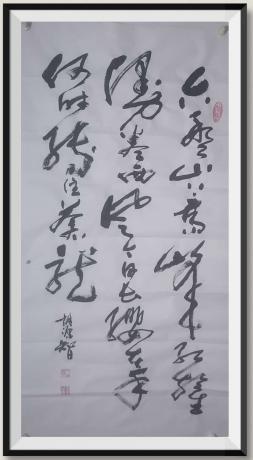 六盘山上高峰红旗
漫卷西风今日长缨在手
何时缚住苍龙
胡 智